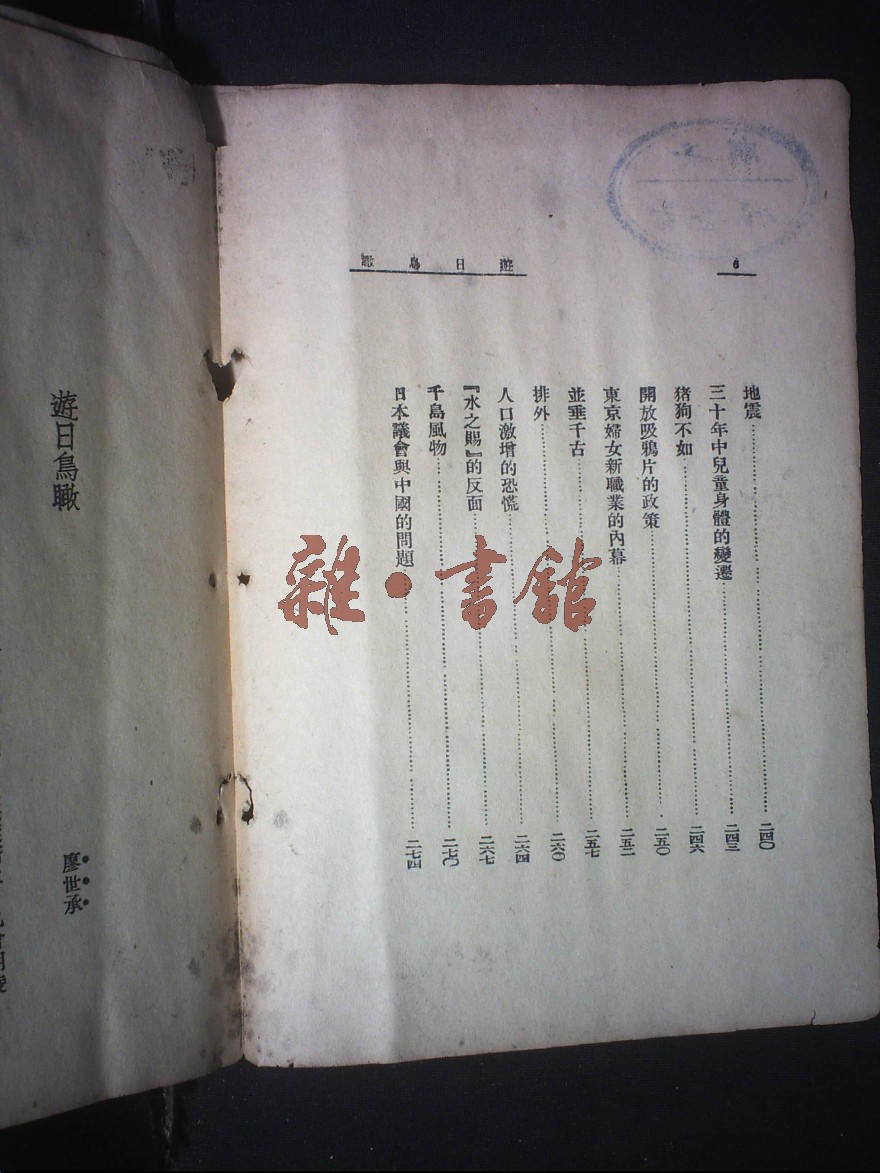 6
遊日鳥瞰
地震…………二四〇
三十年中兒童身體的變遷…………二四三
猪狗不如…………二四六
開放吸鴉片的政策…………二五〇
東京婦女新職業的內幕…………二五二
並垂千古…………二五七
排外…………二六〇
人口激增的恐慌…………二六四
『水之賜』的反面…………二六七
千島風物…………二七〇
日本議會與中國的問題…………二七四
遊日鳥瞰
廖世承
雜·書館